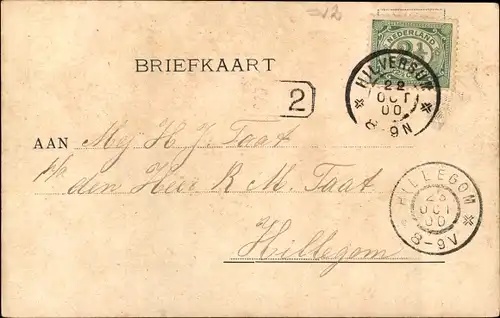 =12
NEDERLAND
2½
BRIEFKAART
HILVERSUM
22
OCT
00
8-9N
2
AAN Mej H. J. Taat
p/a den Heer R M. Taat
Hillegom
HILLEGOM
23
OCT
00
8-9V